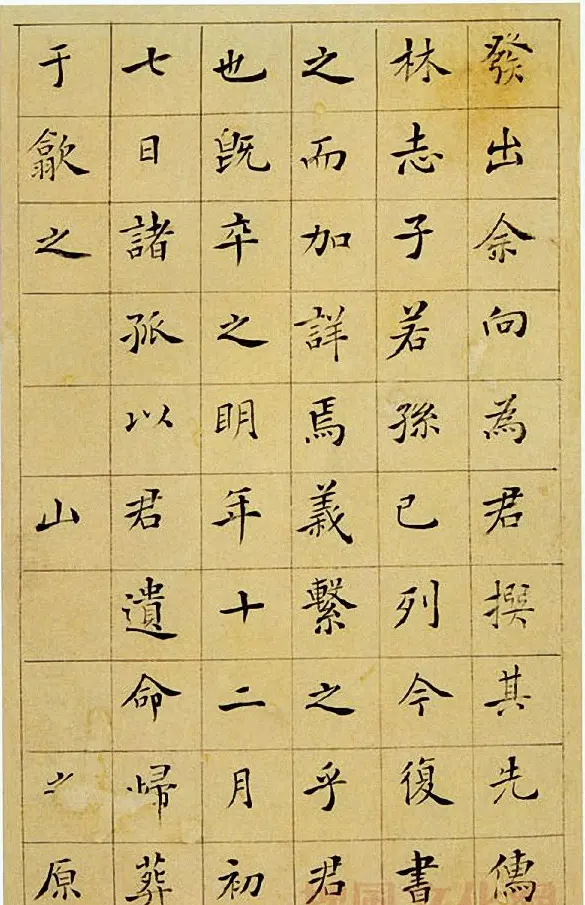 發出余向為君撰其先儒
林志子若孫已列今復書
之而加詳焉義繫之乎君
也既卒之明年十二月初
七日諸孤以君遺命歸葬
于歙之山之原